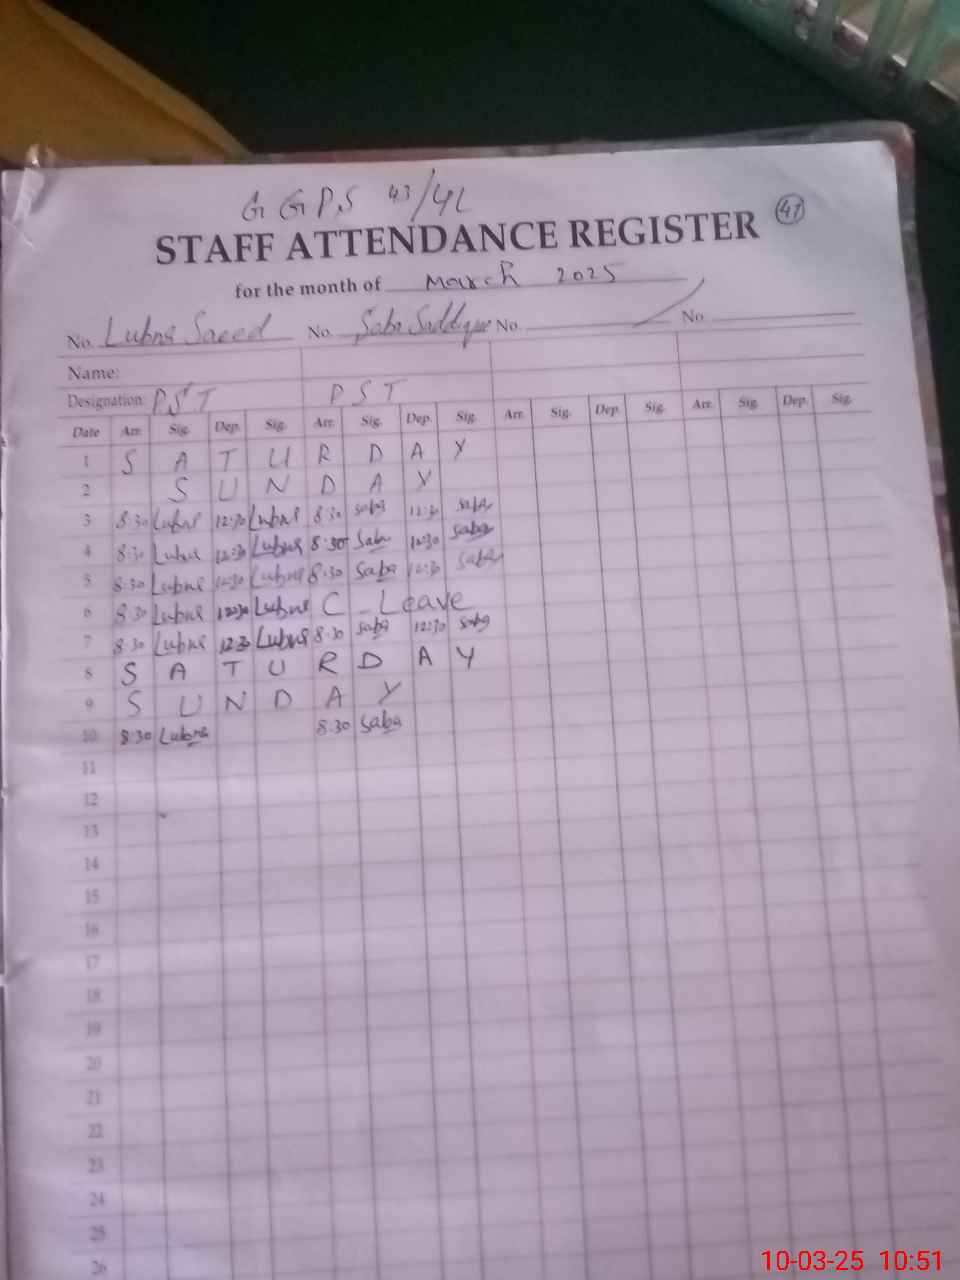 G G P.S 43/4L
47
STAFF ATTENDANCE REGISTER
for the month of March 2025
No. Lubna Saeed No. Saba Saddique No. No.
Name:
Designation: P.S T P S T
Date Arr. Sig. Dep. Sig. Arr. Sig. Dep. Sig. Arr. Sig. Dep. Sig. Arr. Sig. Dep. Sig.
1 S A T U R D A Y
2 S U N D A Y
3 8:30 Lubna 12:30 Lubna 8:30 saba 12:30 saba
4 8:30 Lubna 12:30 Lubna 8:30 Saba 12:30 Saba
5 8:30 Lubna 12:30 Lubna 8:30 Saba 12:30 Saba
6 8:30 Lubna 12:30 Lubna C - Leave
7 8:30 Lubna 12:30 Lubna 8:30 Saba 12:30 Saba
8 S A T U R D A Y
9 S U N D A Y
10 8:30 Lubna 8:30 Saba
11
12
13
14
15
16
17
18
19
20
21
22
23
24
25
26
10-03-25 10:51